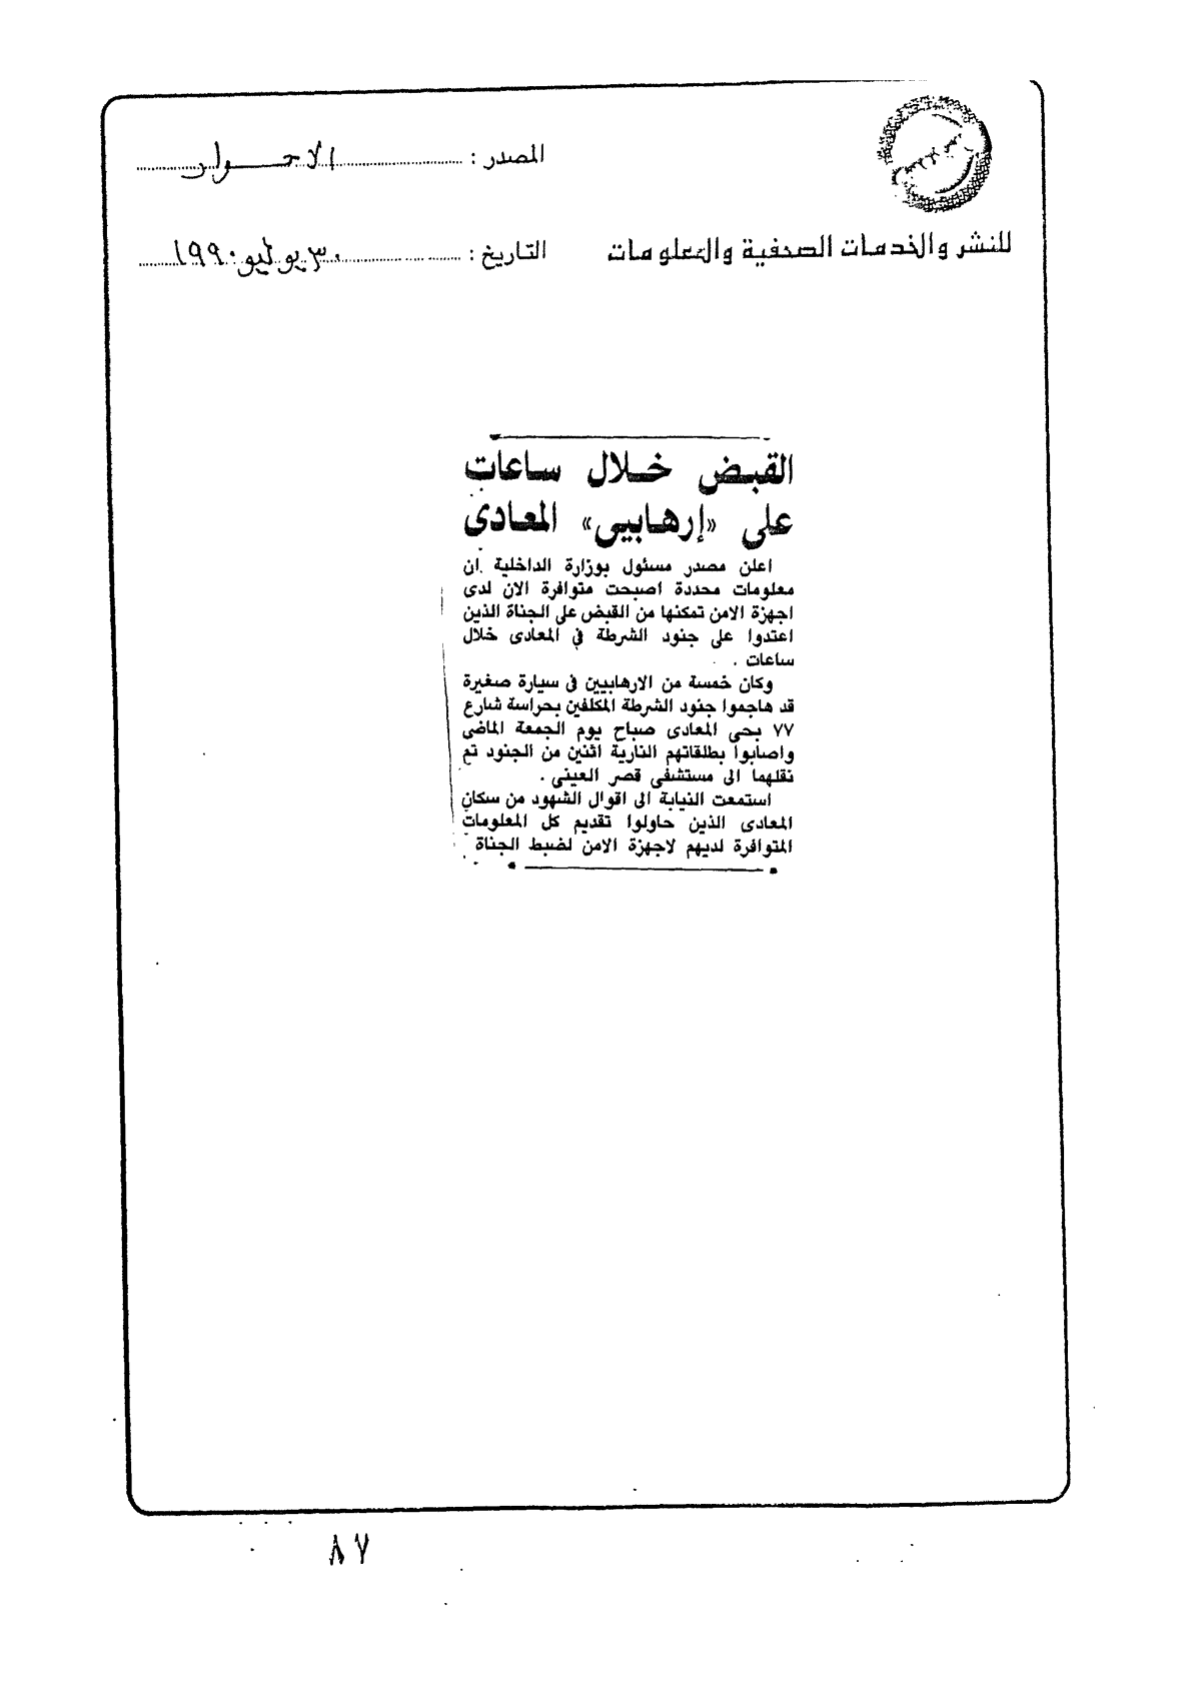 المصدر : الاحـــرار
للنشر والخدمات الصحفية والمعلومات
التاريخ : ٣٠ يوليو ١٩٩٠
القبض خلال ساعات
على «إرهابيى» المعادى
اعلن مصدر مسئول بوزارة الداخلية ان
معلومات محددة اصبحت متوافرة الان لدى
اجهزة الامن تمكنها من القبض على الجناة الذين
اعتدوا على جنود الشرطة فى المعادى خلال
ساعات .
وكان خمسة من الارهابيين فى سيارة صغيرة
قد هاجموا جنود الشرطة المكلفين بحراسة شارع
٧٧ بحى المعادى صباح يوم الجمعة الماضى
واصابوا بطلقاتهم النارية اثنين من الجنود تم
نقلهما الى مستشفى قصر العينى .
استمعت النيابة الى اقوال الشهود من سكان
المعادى الذين حاولوا تقديم كل المعلومات
المتوافرة لديهم لاجهزة الامن لضبط الجناة
٨٧